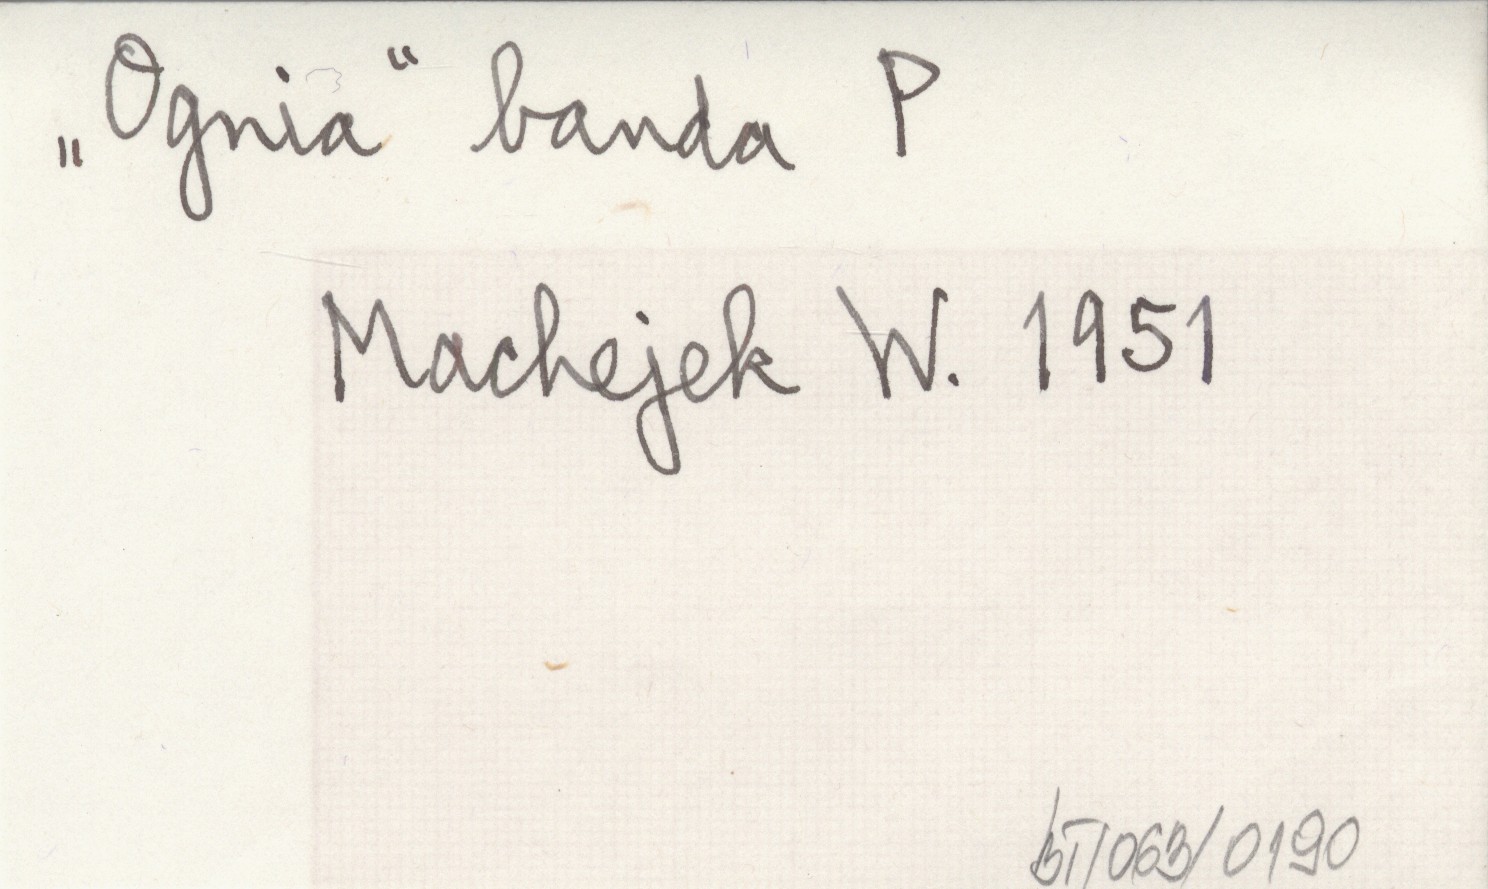 „Ognia“ banda P
Machejek W. 1951
bT/063/0190